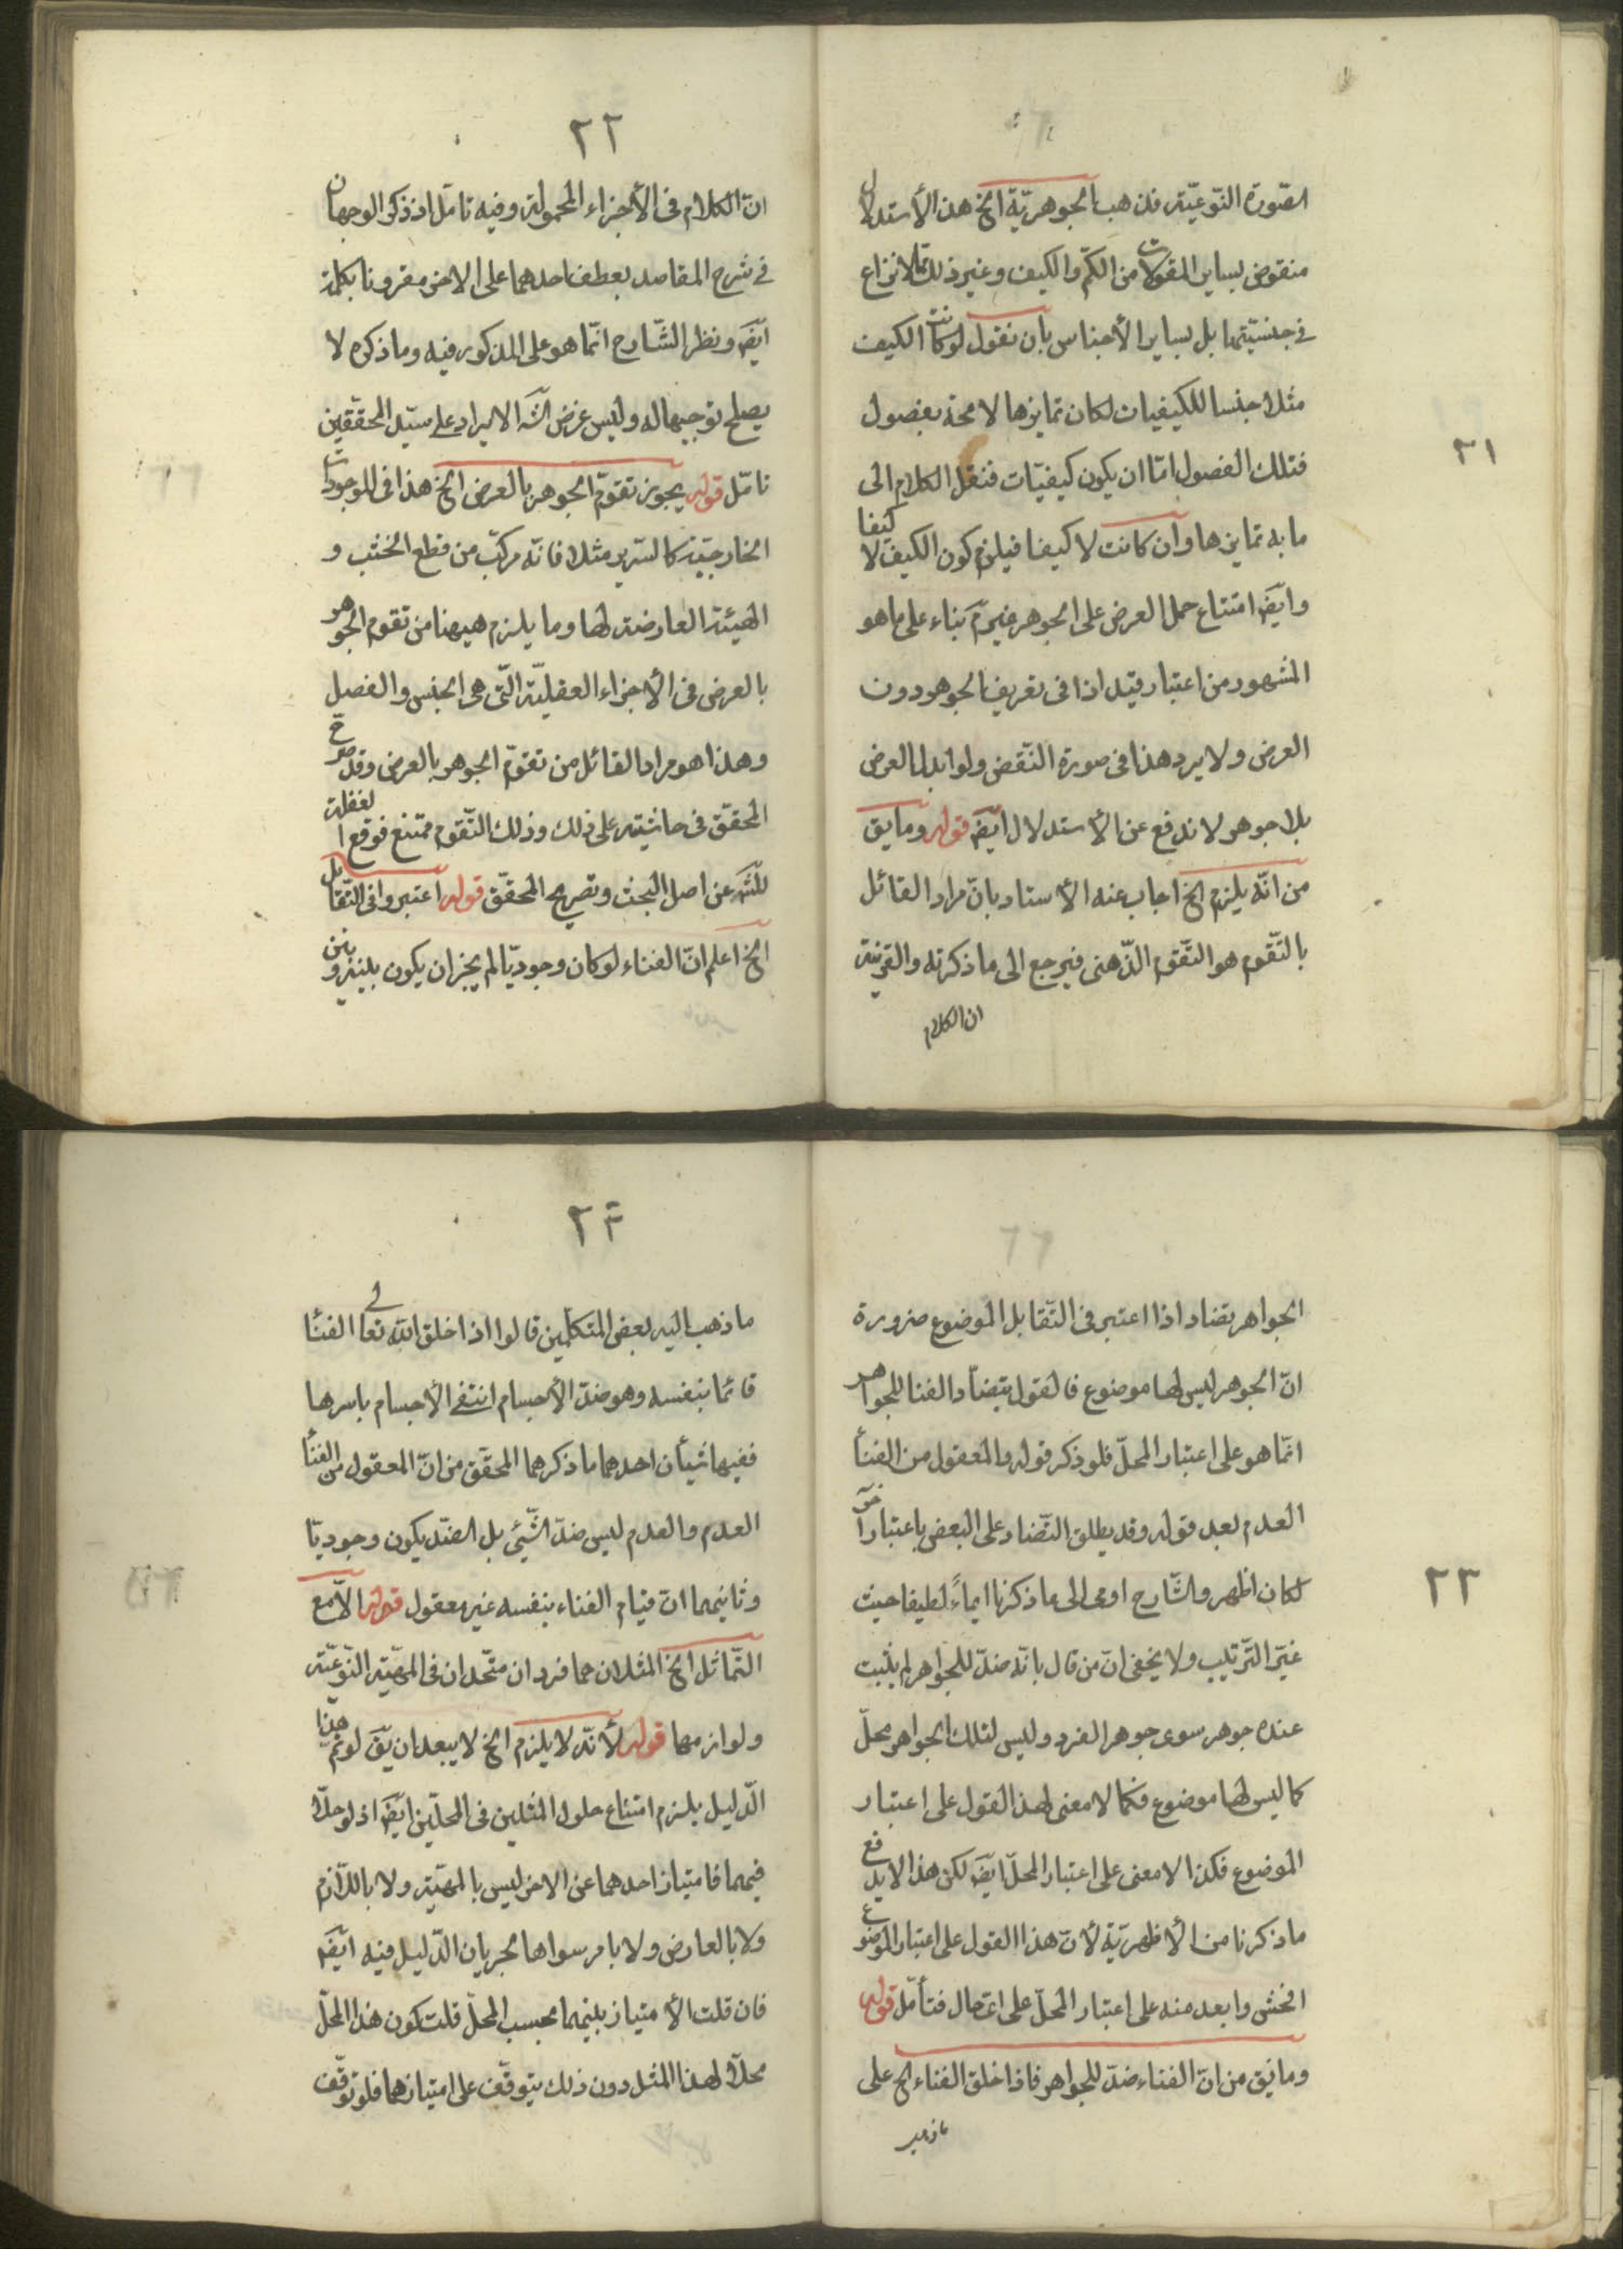 الصّورة النّوعيّة فذهب الجوهريّة الخ هذا الأستدلال
منقوض بساير المقولات من الكمّ والكيف وغير ذلك مما لا نزاع
فى جنسيّتها بل بساير الأجناس بان نقول لو كانت الكيف
مثلا جنسا للكيفيات لكان تمايزها لا محة بفصول
فتلك الفصول امّا ان يكون كيفيّات فننقل الكلام الى
ما به تمايزها وان كانت لا كيفا فيلزم كون الكيف لا كيفا
وايضَ امتناع حمل العرض على الجوهر غير مَ بناء على ما هو
المشهور من اعتبار قيد اذا فى تعريف الجوهر دون
العرض ولا يرد هذا فى صورة النّقض ولو ابدل العرض
بلا جوهر لاندفع عن الأستدلال ايضَ قوله وما يق
من انّه يلزم الخ اجاب عنه الأستاد بانّ مراد القائل
بالتّقوم هو التّقوم الذّهنى فيرجع الى ما ذكرته والقرينة
ان الكلام
٢١
٢٢
انّ الكلام فى الأجزاء المحمولة وفيه تامّل اذ ذكر الوجهان
فى شرح المقاصد بعطف احدهما على الاخر مقرونا بكلمة
ايضَ ونظر الشّارح انّما هو على المذكور فيه وما ذكره لا
يصلح توجيها له وليس غرض الشَه الايراد على سيّد المحقّقين
تامّل قوله يجوز تقوّم الجوهر بالعرض الخ هذا فى الموجودات
الخارجيّة كالسّرير مثلا فانّه مركّب من قطع الخشب و
الهيئة العارضة لها وما يلزم هيهنا من تقوم الجوهر
بالعرض فى الأجزاء العقليّة الّتى هى الجنس والفصل
وهذا هو مراد القائل من تقوّم الجوهر بالعرض وقد صرّح
المحقّق فى حاشيته على ذلك وذلك التّقوم ممتنع فوقع الغفلة
للشَه عن اصل البحث وتصريح المحقّق قوله اعتبروا فى التّقابل
الخ اعلم انّ الفناء لو كان وجوديّا لم يجز ان يكون بينه وبين
الجواهر تضاد اذا اعتبر فى التّقابل الموضوع ضرورة
انّ الجوهر ليس لها موضوع فالقول بتضادّ الفنا للجواهر
انّما هو على اعتبار المحلّ فلو ذكر قوله والمعقول من الفنأ
العدم بعد قوله وقد يطلق التّضاد على البعض باعتبار آخر
لكان اظهر والشّارح اومى الى ما ذكرنا ايماءً لطيفا حيث
غيّر التّرتيب ولا يخفى انّ من قال بانّه ضدّ للجواهر لم يثبت
عنده جوهر سوى جوهر الفرد وليس لتلك الجواهر محلّ
كما ليس لها موضوع فكما لا معنى لهذا القول على اعتبار
الموضوع فكذا لا معنى على اعتبار المحلّ ايضَ لكن هذا لا يدفع
ما ذكرنا من الأظهريّة لأنّ هذا القول على اعتبار الموضوع
افحش وابعد منه على اعتبار المحلّ على اىّ حال فتأمّل قوله
وما يق من انّ الفناء ضدّ للجواهر فاذا خلق الفناء الخ على
ما ذهب
٢٣
٢٤
ما ذهب اليه بعض المتكلّمين قالوا اذا خلق اللّه تعالى الفنأ
قائما بنفسه وهو ضدّ الأجسام انتفى الأجسام باسرها
ففيها شيأن احدهما ما ذكرهما المحقّق من انّ المعقول من الفنأ
العدم والعدم ليس ضدّ الشّيئ بل الضدّ يكون وجوديّا
وثانيهما انّ قيام الفناء بنفسه غير معقول قوله الّا مع
التّماثل الخ المثلان هما فردان متّحدان فى المهيّة النّوعيّة
ولوازمها قوله لأنّه لا يلزم الخ لا يبعد ان يقَ لو تمّ هذا
الدّليل يلزم امتناع حلول المثلين فى المحلّين ايضَ اذ لو حلّا
فيهما فامتياز احدهما عن الاخر ليس بالمهيّة ولا باللّازم
ولا بالعارض ولا بامر سواها لجريان الدّليل فيه ايضَ
فان قلت الأمتياز بينهما بحسب المحلّ قلت كون هذا المحلّ
محلّا لهذا المثل دون ذلك يتوقّف على امتيازهما فلو توقّف